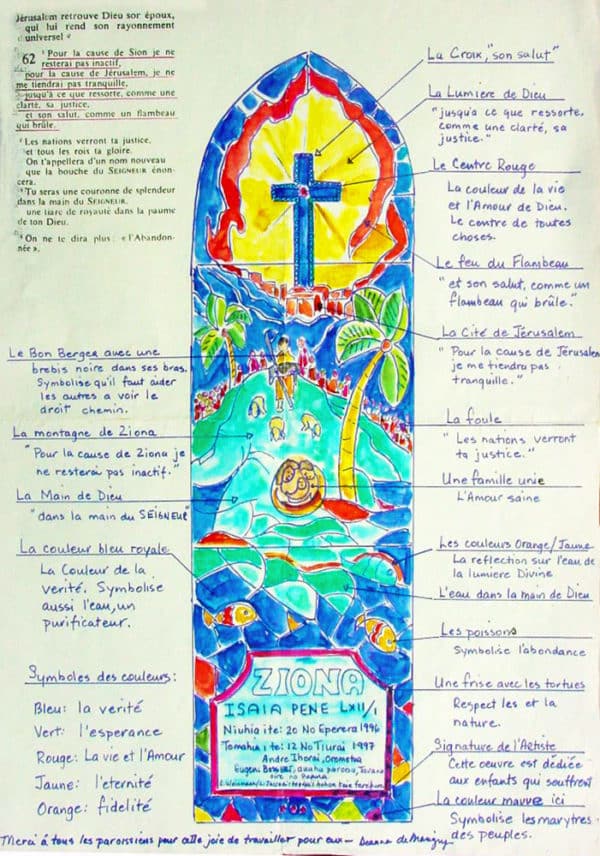 Jérusalem retrouve Dieu son époux,
qui lui rend son rayonnement
universel
62 ¹Pour la cause de Sion je ne
resterai pas inactif,
pour la cause de Jérusalem, je ne
me tiendrai pas tranquille,
jusqu'à ce que ressorte, comme une
clarté, sa justice,
et son salut, comme un flambeau
qui brûle.
²Les nations verront ta justice,
et tous les rois ta gloire.
On t'appellera d'un nom nouveau
que la bouche du SEIGNEUR énon-
cera.
³Tu seras une couronne de splendeur
dans la main du SEIGNEUR,
une tiare de royauté dans la paume
de ton Dieu.
⁴On ne te dira plus : « l'Abandon-
née »,
La Croix, "son salut"
La Lumière de Dieu
"jusqu'à ce que ressorte,
comme une clarté, sa
justice."
Le Centre Rouge
La couleur de la vie
et l'Amour de Dieu.
Le centre de toutes
choses.
Le feu du Flambeau
"et son salut, comme un
flambeau qui brûle."
La Cité de Jérusalem
"Pour la cause de Jérusalem
je me tiendrai pas
tranquille."
La foule
"Les nations verront
ta justice."
Une famille unie
L'Amour saine
Les couleurs Orange/Jaune
La reflection sur l'eau de
la lumiere Divine
L'eau dans la main de Dieu
Les poissons
Symbolise l'abondance
Une frise avec les tortues
Respect les et la
nature.
Signature de l'Artiste
Cette oeuvre est dédiée
aux enfants qui souffrent
La couleur mauve ici
Symbolise les marytres
des peuples.
Le Bon Berger avec une
brebis noire dans ses bras.
Symbolise qu'il faut aider
les autres a voir le
droit chemin.
La montagne de Ziona
"Pour la cause de Ziona je
ne resterai pas inactif."
La Main de Dieu
"dans la main du SEIGNEUR"
La couleur bleu royale
La Couleur de la
verité. Symbolise
aussi l'eau, un
purificateur.
Symboles des couleurs:
Bleu: la verité
Vert: l'esperance
Rouge: La vie et l'Amour
Jaune: l'eternité
Orange: fidelité
ZIONA
ISAIA PENE LXII/1
Niuhia ite: 20 No Eperera 1996
Tomohia ite: 12 No Tiurai 1997
Andre Ihorai, Orometua
Merci à tous les paroissiens pour cette joie de travailler pour eux —